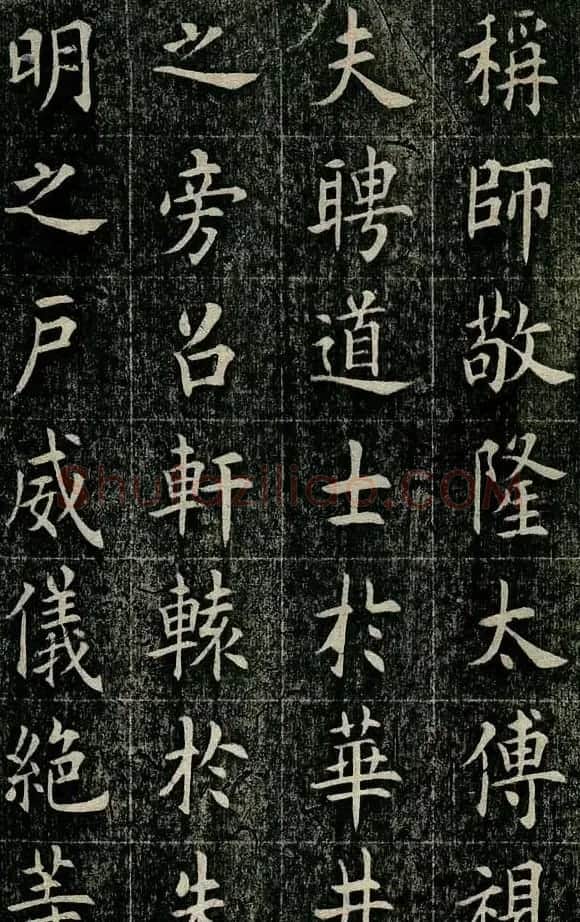 稱師敬隆太傅
夫聘道士於華井
之旁召軒轅於朱
明之戶威儀絕
Shufaziliao.COM